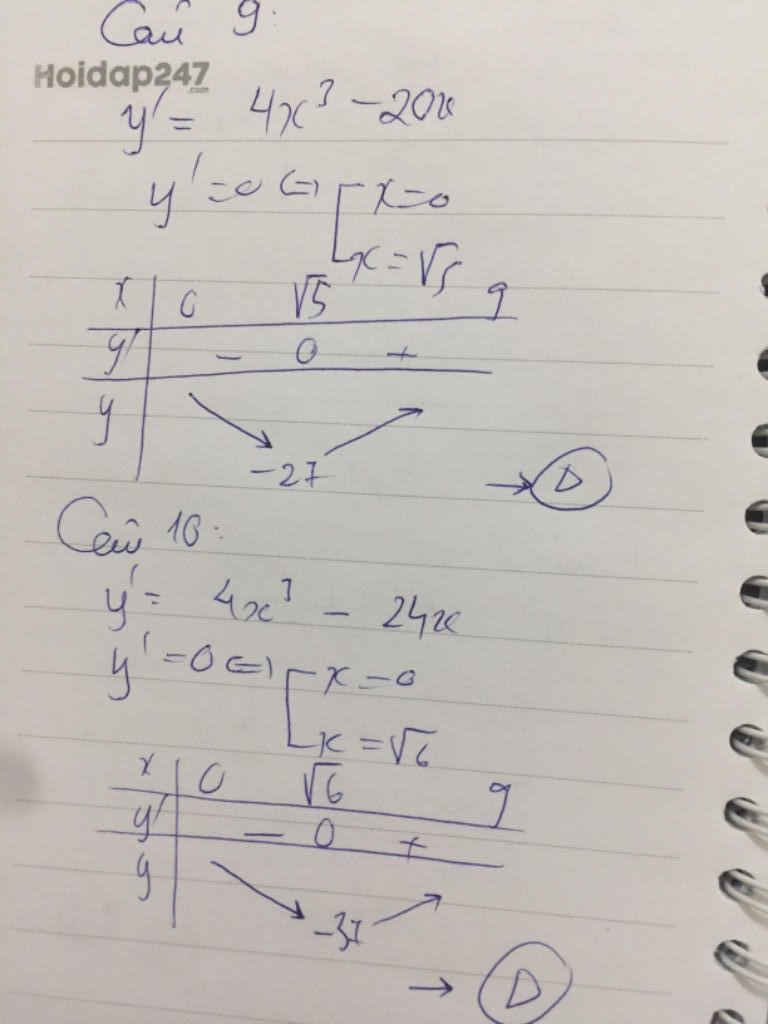 Câu 9:
Hoidap247
.com
y' = 4x³ - 20x
y' = 0 (=) [ x = 0
x = √5
x | 0 √5 9
y' | - 0 +
y | ↘ -27 ↗
→ D
Câu 10:
y' = 4x³ - 24x
y' = 0 (=) [ x = 0
x = √6
x | 0 √6 9
y' | - 0 +
y | ↘ -37 ↗
→ D